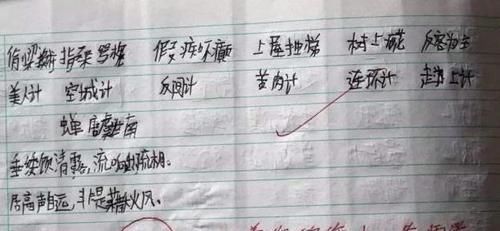 偷梁换柱 指桑骂槐 假痴不癫 上屋抽梯 树上开花 反客为主
美人计 空城计 反间计 苦肉计 连环计 走为上计
蝉 虞世南
垂緌饮清露,流响出疏桐。
居高声自远,非是藉秋风。